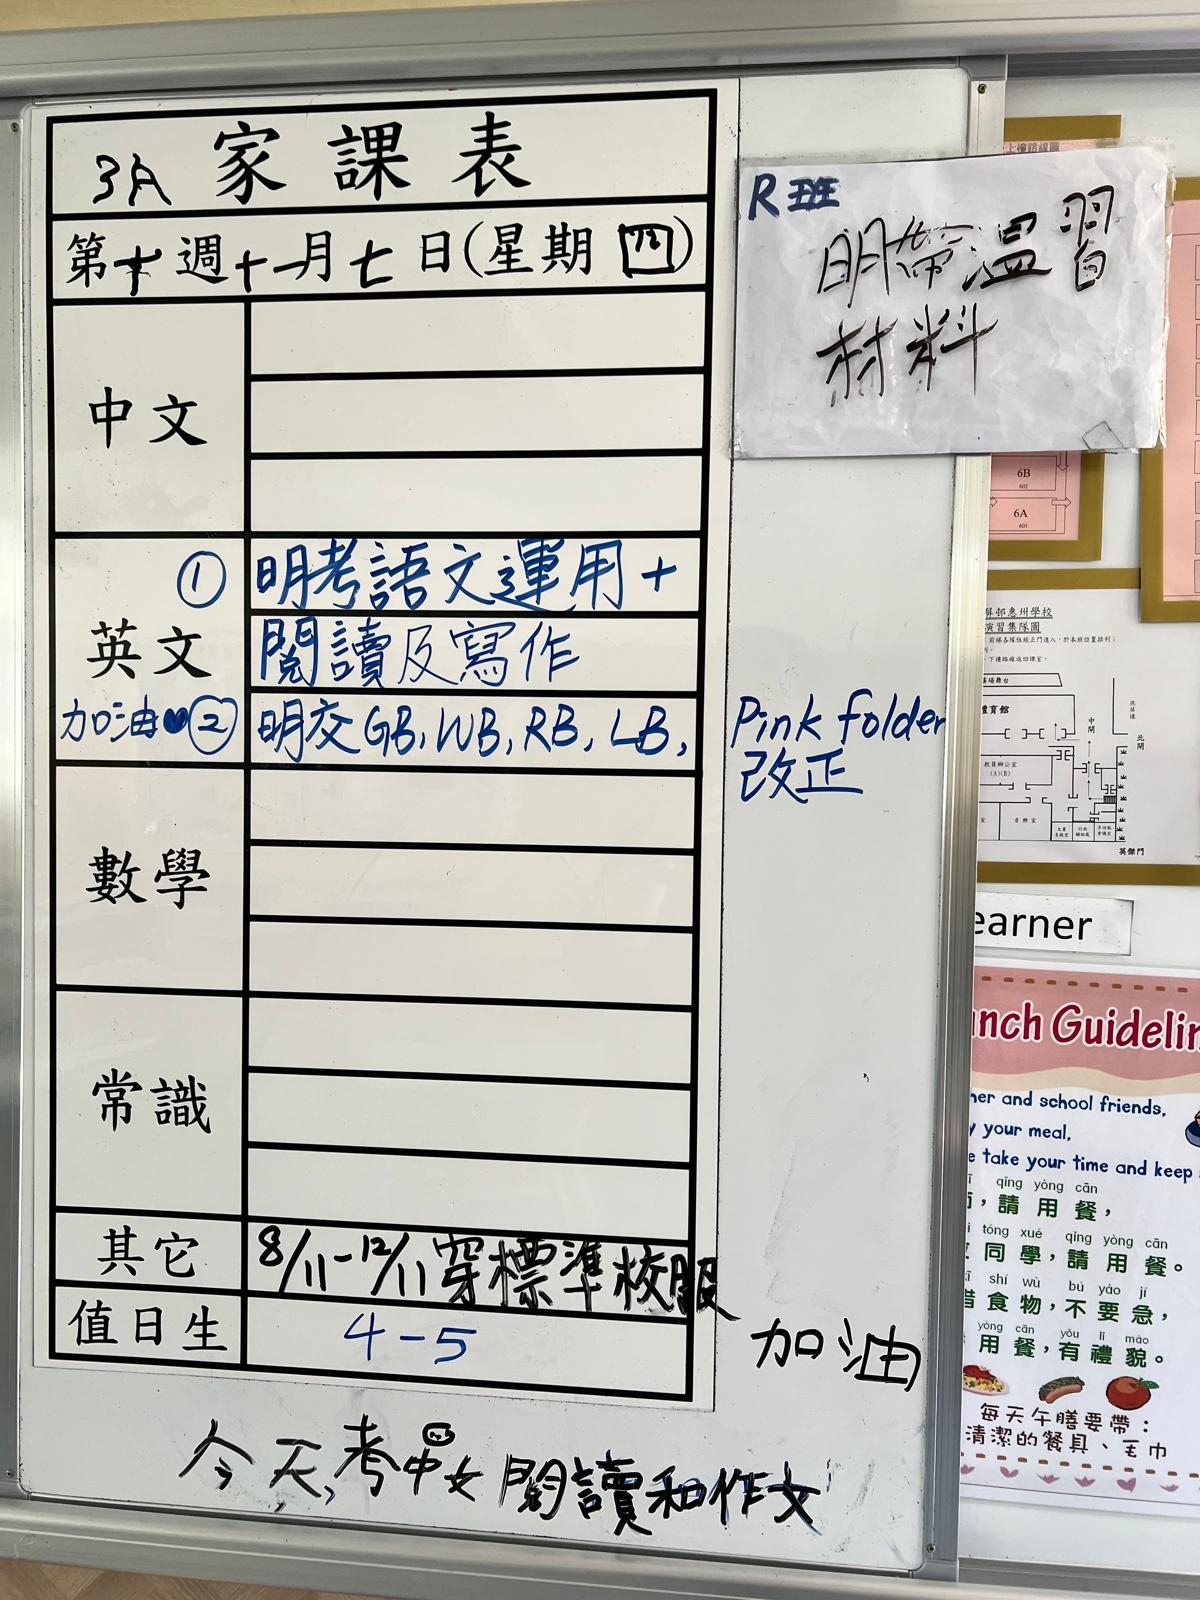 3A 家課表
第十週十一月七日(星期四)
中文
英文
① 明考語文運用+
閱讀及寫作
加油♥② 明交GB, WB, RB, LB, Pink folder
改正
數學
常識
其它
8/11-12/11穿標準校服
值日生
4-5
加油
今天考中文閱讀和作文
R班
明帶溫習
材料
上樓路線圖
6B
602
6A
601
屏邨惠州學校
演習集隊圖
廣場舞台
體育館
中閘
北閘
教員辦公室
(A)(B)
音樂室
英傑門
earner
nch Guidelin
her and school friends,
y your meal,
e take your time and keep
qǐng yòng cān
,請用餐,
tóng xué qǐng yòng cān
同學,請用餐。
shí wù bú yào jí
食物,不要急,
yòng cān yǒu lǐ mào
用餐,有禮貌。
每天午膳要帶:
清潔的餐具、毛巾